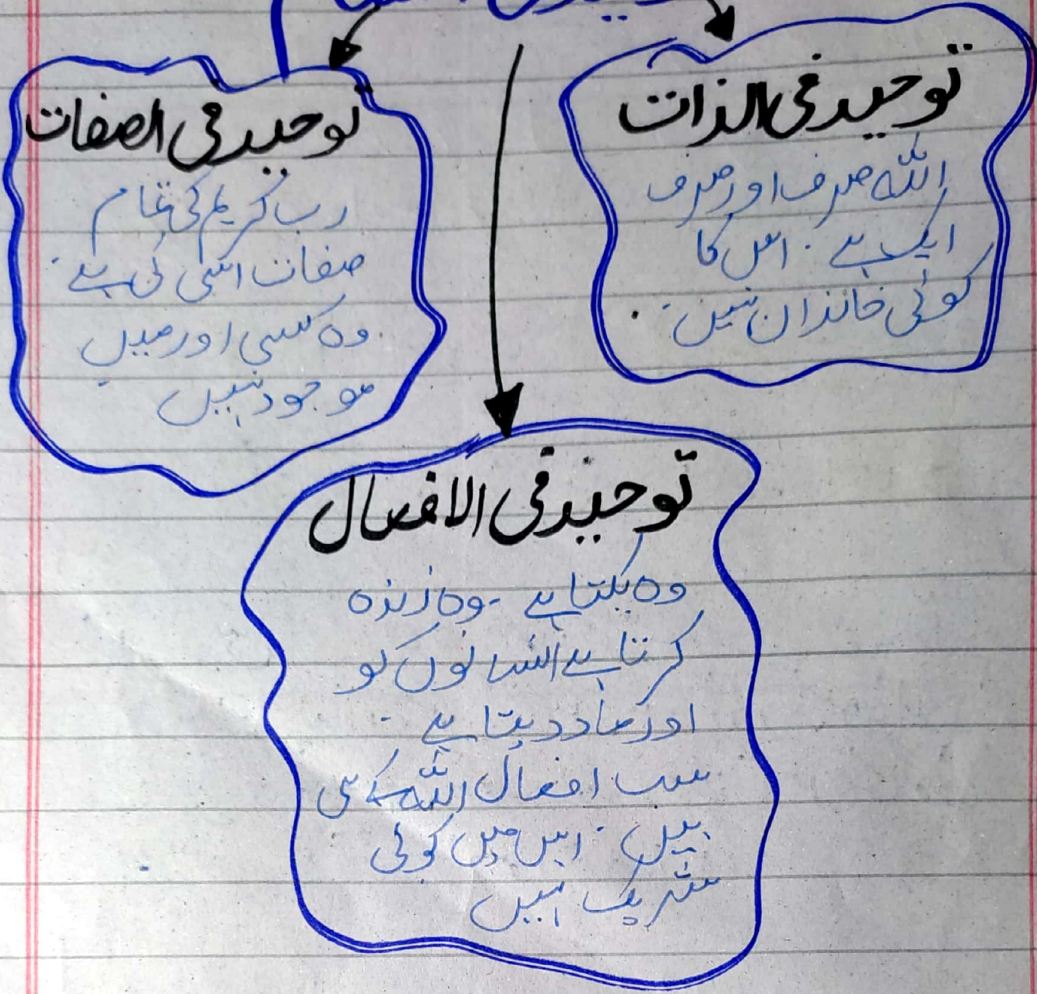 توحید فی الذات
اللّٰہ صرف اور صرف
ایک ہے۔ اس کا
کوئی خاندان نہیں۔
توحید فی الصفات
رب کریم کی تمام
صفات اسی کی ہے۔
وہ کسی اور میں
موجود نہیں
توحید فی الافعال
وہ یکتا ہے۔ وہ زندہ
کرتا ہے انسانوں کو
اور مار دیتا ہے۔
سب افعال اللّٰہ کے ہی
ہیں۔ اس میں کوئی
شریک نہیں